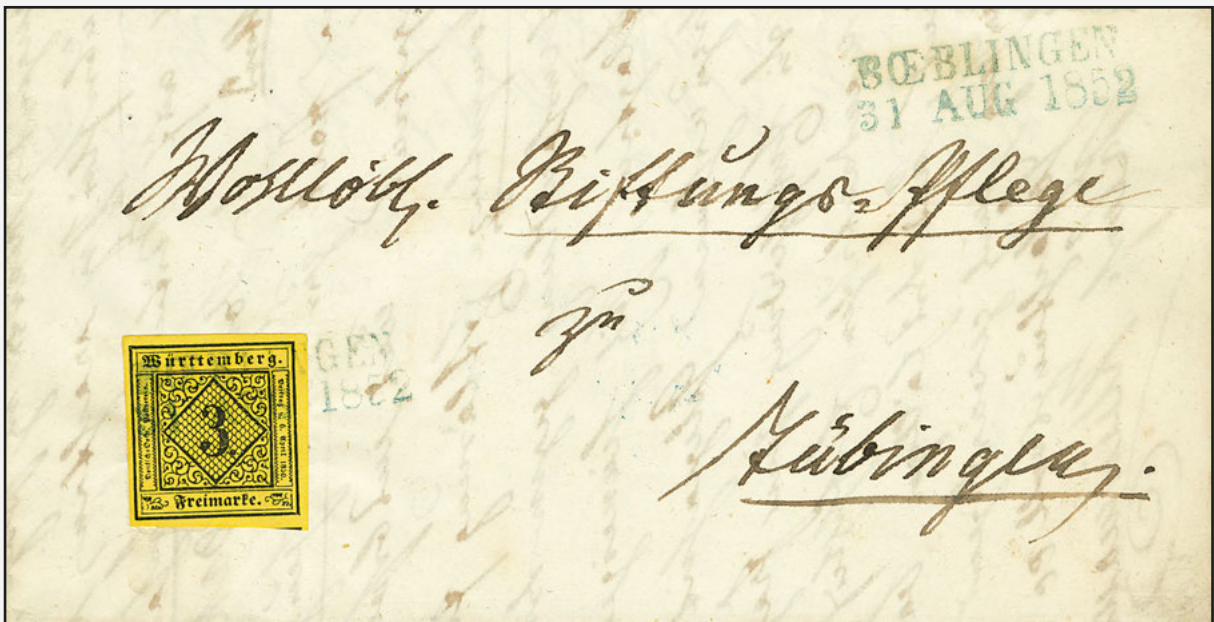 BŒBLINGEN
31 AUG 1852
Wohllöbl. Stiftungs-Pflege
zu
Tübingen.
GEN
1852
Württemberg.
3.
Freimarke.